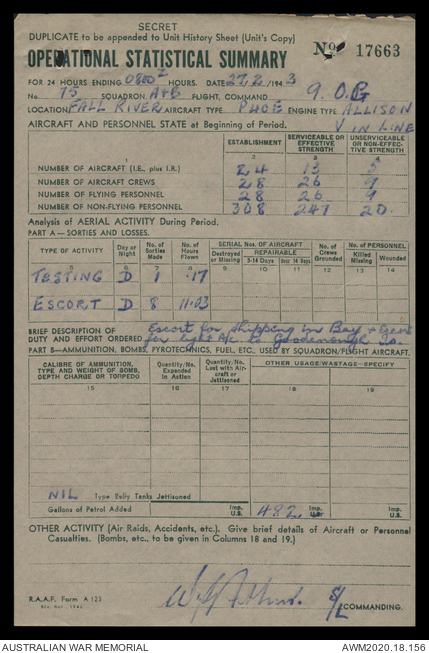 SECRET
DUPLICATE to be appended to Unit History Sheet (Unit's Copy)
OPERATIONAL STATISTICAL SUMMARY No 17663
FOR 24 HOURS ENDING 0800Z HOURS. DATE 27/2/1943
No. 75 SQUADRON. A+B FLIGHT, COMMAND 9. O.G
LOCATION FALL RIVER AIRCRAFT TYPE P40E ENGINE TYPE ALLISON
V IN LINE
AIRCRAFT AND PERSONNEL STATE at Beginning of Period.
ESTABLISHMENT SERVICEABLE OR EFFECTIVE STRENGTH UNSERVICEABLE OR NON-EFFECTIVE STRENGTH
1 2 3 4
NUMBER OF AIRCRAFT (I.E., plus I.R.) 24 13 5
NUMBER OF AIRCRAFT CREWS 28 26 9
NUMBER OF FLYING PERSONNEL 28 26 9
NUMBER OF NON-FLYING PERSONNEL 308 247 20.
Analysis of AERIAL ACTIVITY During Period.
PART A—SORTIES AND LOSSES.
TYPE OF ACTIVITY Day or Night No. of Sorties Made No. of Hours Flown SERIAL Nos. OF AIRCRAFT Destroyed or Missing REPAIRABLE 3-14 Days Over 14 Days No. of Crews Grounded No. of PERSONNEL Killed Missing Wounded
5 6 7 8 9 10 11 12 13 14
TESTING D 1 .17
ESCORT D 8 11.03
BRIEF DESCRIPTION OF DUTY AND EFFORT ORDERED
Escort for shipping in Bay + Escort
for light A/c. to Goodenough Is.
PART B—AMMUNITION, BOMBS, PYROTECHNICS, FUEL, ETC. USED BY SQUADRON/FLIGHT AIRCRAFT.
CALIBRE OF AMMUNITION, TYPE AND WEIGHT OF BOMB, DEPTH CHARGE OR TORPEDO Quantity/No. Expended in Action Quantity/No. Lost with Aircraft or Jettisoned OTHER USAGE/WASTAGE—SPECIFY
15 16 17 18 19
NIL Type Belly Tanks Jettisoned
Gallons of Petrol Added Imp. U.S. 482 Imp. U.S. Imp. U.S.
OTHER ACTIVITY (Air Raids, Accidents, etc.). Give brief details of Aircraft or Personnel
Casualties. (Bombs, etc., to be given in Columns 18 and 19.)
R.A.A.F. Form A 123
S/L COMMANDING.
AUSTRALIAN WAR MEMORIAL AWM2020.18.156